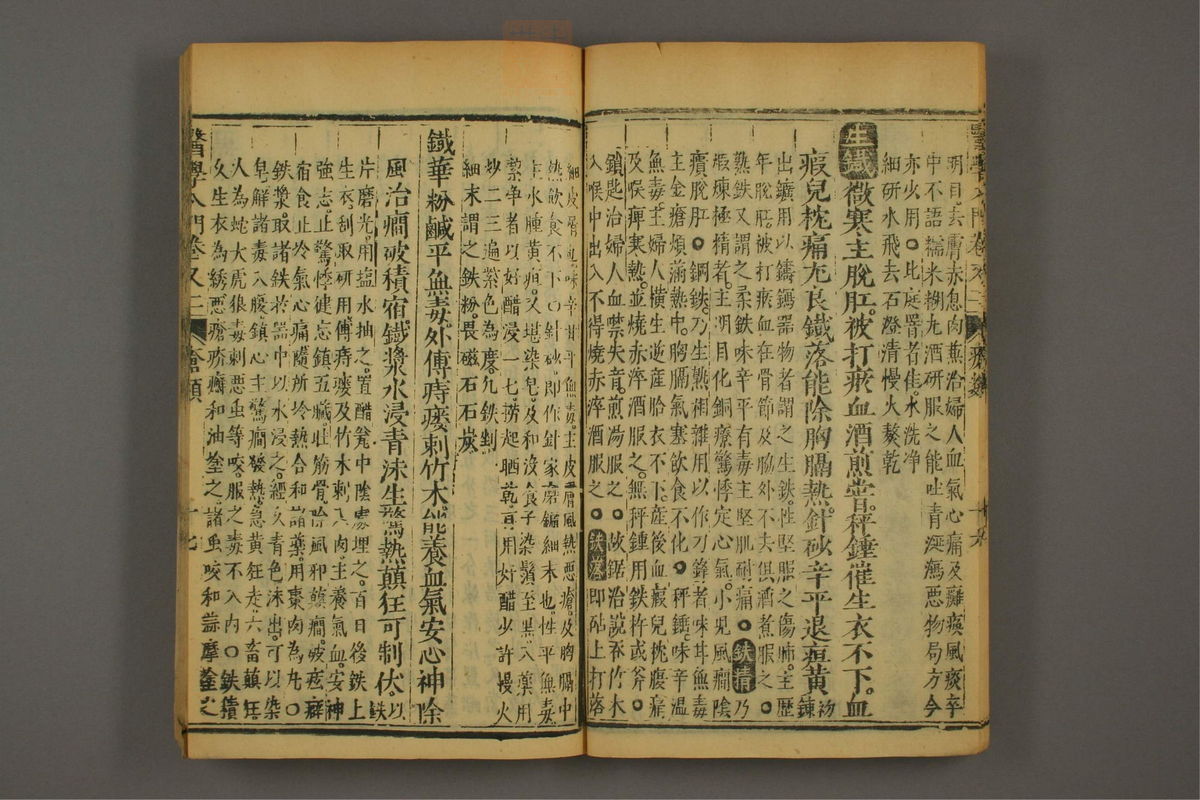 明目去膚赤息肉兼治婦人血氣心痛及癱瘓風痰卒
中不語糯米糊丸酒研服之能吐青涎瀉惡物局方今
亦少用○此庭罯者佳水洗净
細研水飛去石澄清慢火熬乾
生鐵微寒主脫肛被打瘀血酒煎嘗秤錘催生衣不下血
瘕兒枕痛尤良鐵落能除胸膈熱針砂辛平退疸黃初鍊
出鑛用以鑄鎢器物者謂之生鉄性堅服之傷肺主歷
年脫肛被打瘀血在骨節及脇外不去俱酒煮服之○
熟鉄又謂之柔鉄味辛平有毒主堅肌耐痛○鉄精乃
煅煉極精者主明目化銅療驚悸定心氣小兒風癇陰
㿗脫肛○鋼鉄乃生熟相雜用以作刀鋒者味甘無毒
主金瘡煩滿熱中胸膈氣塞飲食不化○秤錘味辛溫
無毒主婦人橫生逆產胎衣不下產後血瘕兒枕痛
及喉痺寒熱並燒赤淬酒服之無秤錘用鉄杵或斧○
鎖匙治婦人血噤失音煎湯服之○故鋸治誤吞竹木
入喉中出入不得燒赤淬酒服之○鉄落即砧上打落
細皮屑也味辛甘平無毒主皮膚風熱惡瘡及胸膈中
熱飲食不下○針砂即作針家磨鑢細末也性平無毒
主水腫黃疸又堪染皂及和沒食子染鬚至黑入藥用
絜净者以好醋浸一七撈起晒乾再用好醋少許慢火
炒二三遍紫色為度凡鉄剉
細末謂之鉄粉畏磁石石炭
鐵華粉鹹平無毒外傅痔瘻刺竹木能養血氣安心神除
風治癎破積宿鐵漿水浸青沫生驚熱顛狂可制伏以鉄
片磨光用塩水抽之置醋瓮中陰處埋之百日後鉄上
生衣刮取研用傅痔瘻及竹木刺入肉主養氣血安神
強志止驚悸健忘鎮五臟壯筋骨除風邪顛癇破痃癖
宿食止冷氣心痛隨所冷熱合和諸藥用棗肉為丸○
鉄漿取諸鉄於器中以水浸之經久青色沫出可以染
皂解諸毒入腹鎮心主驚癇發熱急黃狂走六畜顛狂
人為蛇犬虎狼毒刺惡虫等咬服之毒不入內○鉄鏽
乆生衣為綉惡瘡疥癩和油塗之諸虫咬和蒜摩塗之
醫學入門卷又二
瘡類
十七